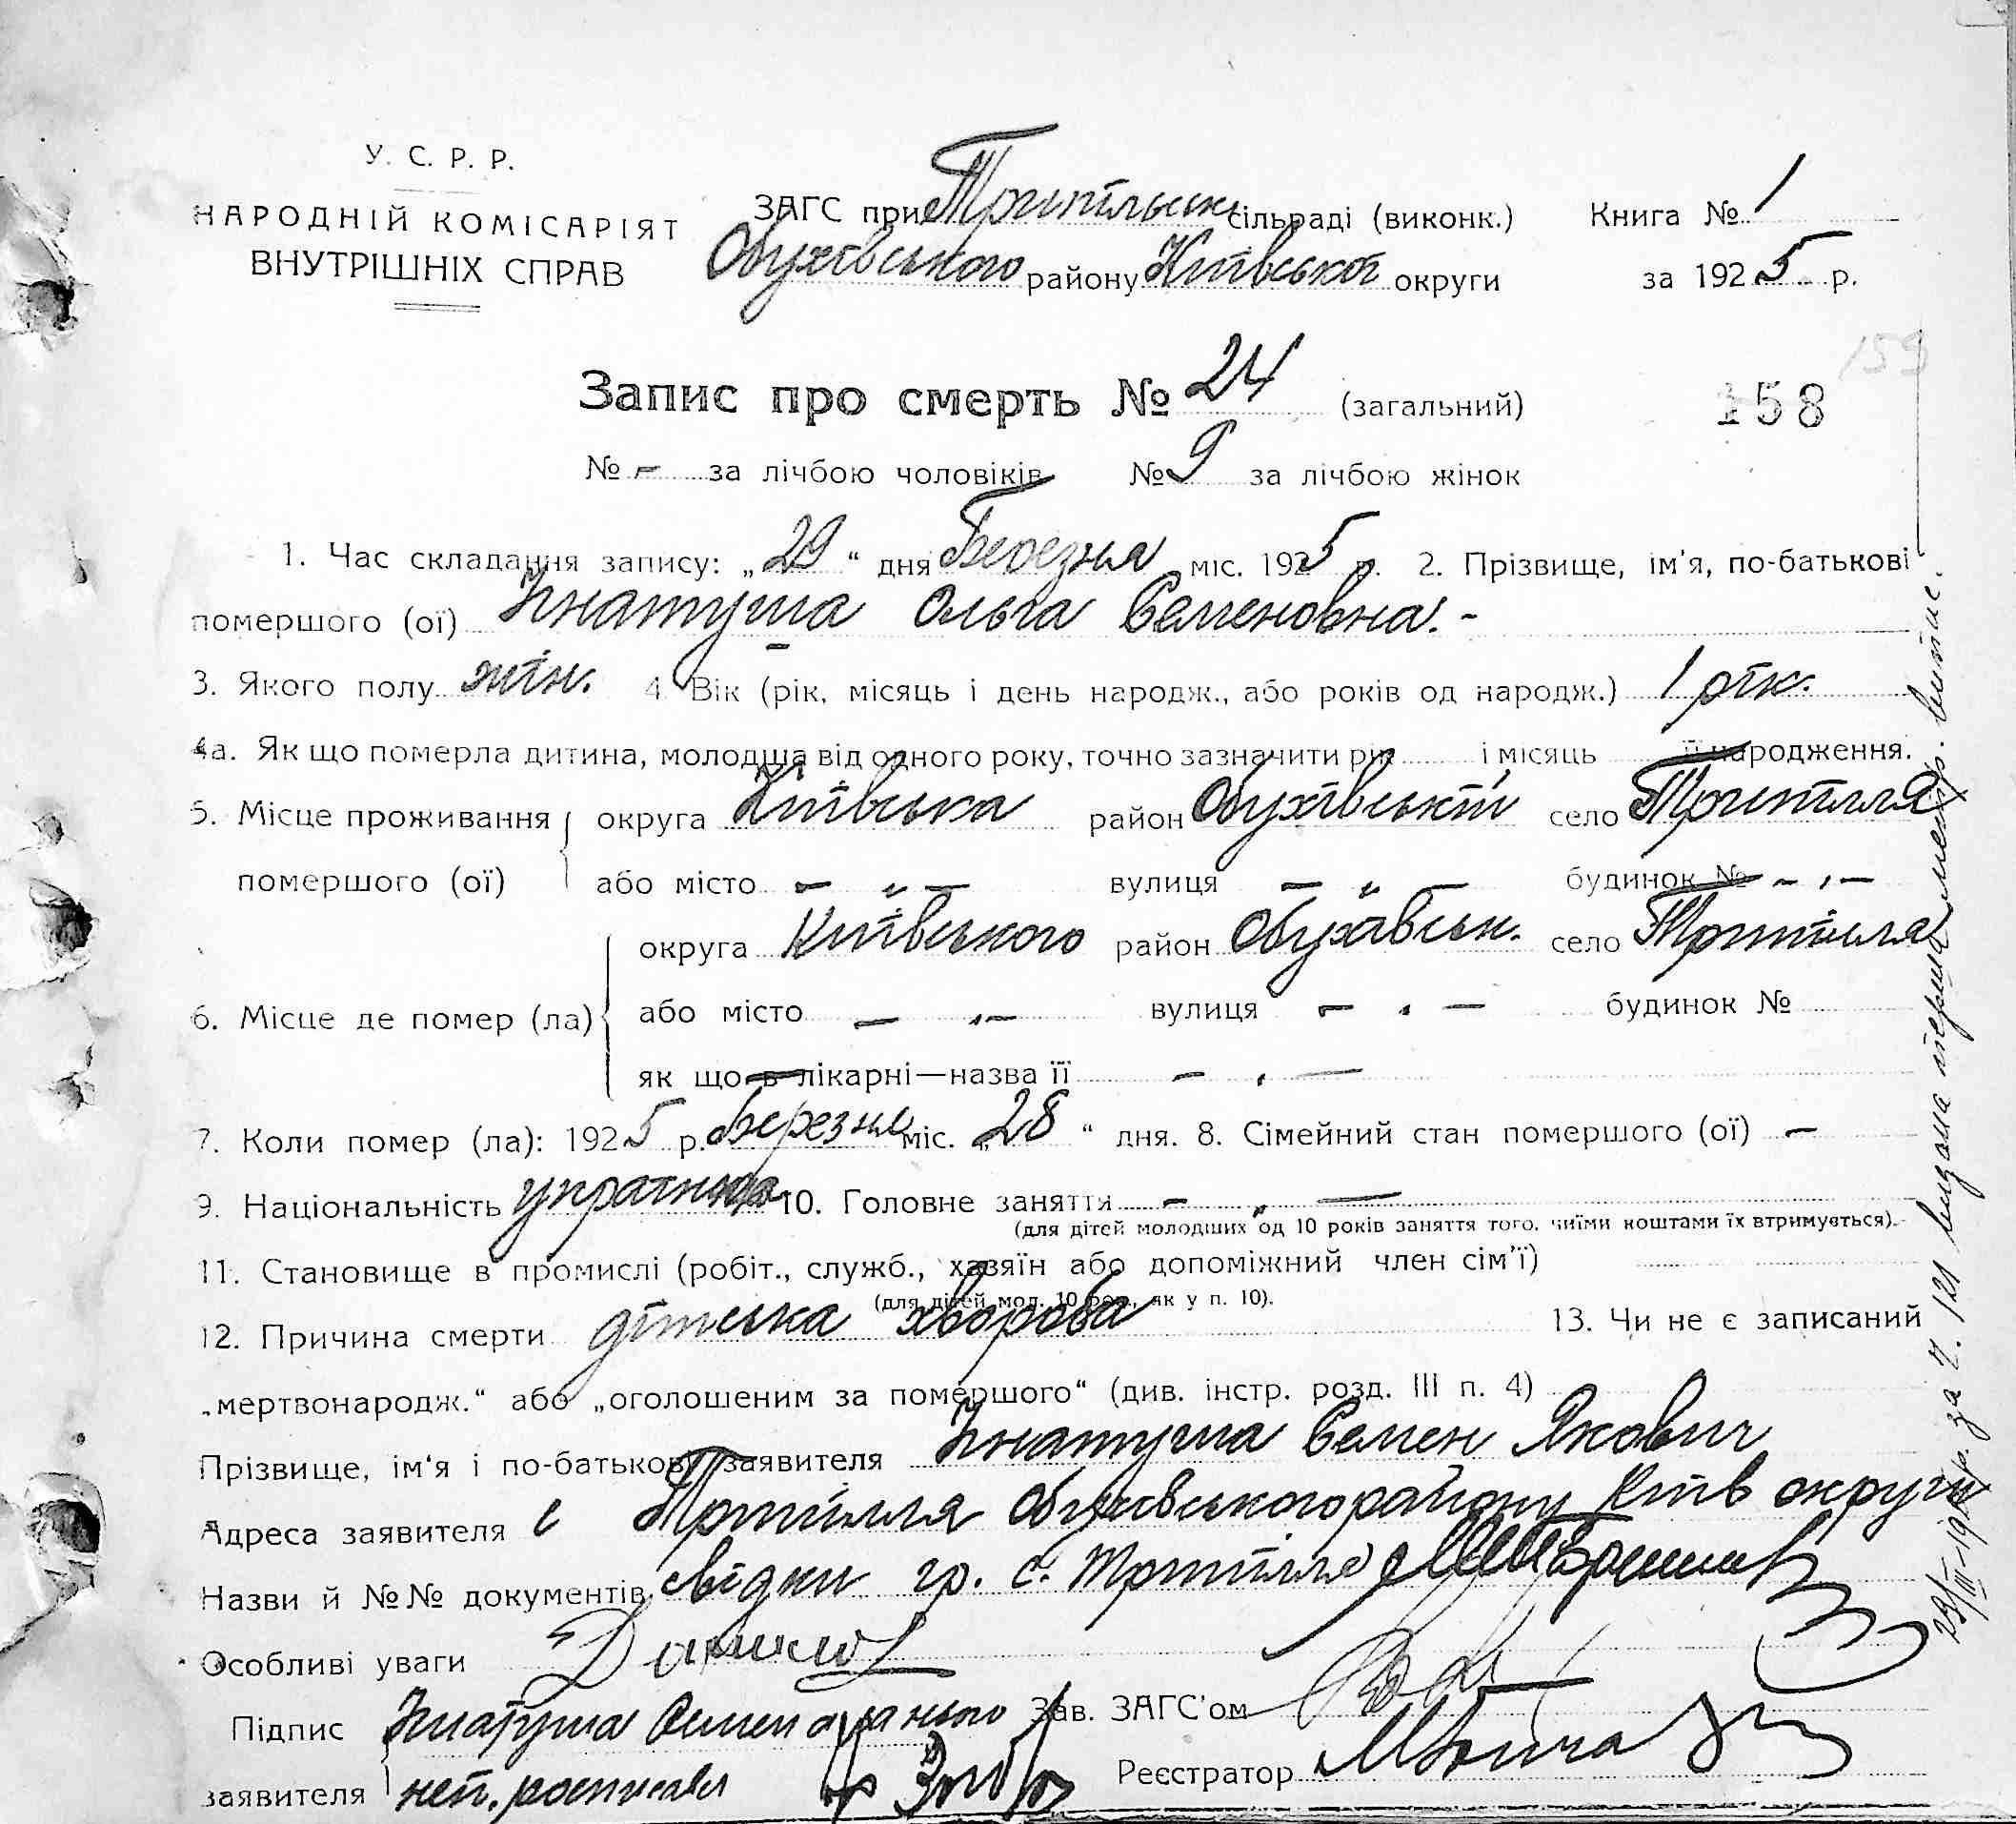 У. С. Р. Р.
НАРОДНІЙ КОМІСАРІЯТ
ВНУТРІШНІХ СПРАВ
ЗАГС при Трипільськ сільраді (виконк.)
Обухівського району Київської округи
Книга № 1
за 1925 р.
Запис про смерть № 24 (загальний)
159
158
№ - за лічбою чоловіків № 9 за лічбою жінок
1. Час складання запису: „29“ дня Березня міс. 1925 р. 2. Прізвище, ім'я, по-батькові
помершого (ої) Ігнатуша Ольга Семеновна. -
3. Якого полу жін. 4. Вік (рік, місяць і день народж., або років од народж.) 1 рік.
4а. Як що померла дитина, молодша від одного року, точно зазначити рік і місяць її народження.
5. Місце проживання помершого (ої) округа Київська район Обухівський село Трипілля
або місто — „ — вулиця — „ будинок № — „ —
6. Місце де помер (ла) округа Київського район Обухівськ. село Трипілля
або місто — „— вулиця — „ — будинок №
як що в лікарні—назва її — „ —
7. Коли помер (ла): 1925 р. Березня міс. „28“ дня. 8. Сімейний стан помершого (ої) —
9. Національність 10. Головне заняття — „ —
(для дітей молодших од 10 років заняття того, чиїми коштами їх втримується).
11. Становище в промислі (робіт., служб., хазяїн або допоміжний член сім'ї)
(для дітей мол. 10 рок., як у п. 10).
12. Причина смерти дітська хвороба 13. Чи не є записаний
„мертвонародж.“ або „оголошеним за помершого“ (див. інстр. розд. III п. 4)
Прізвище, ім'я і по-батькові заявителя Ігнатуша Семен Якович
Адреса заявителя с Трипілля Обухівського району Київ округи
Назви й №№ документів свідки гр. с. Трипілля
Особливі уваги
Підпис заявителя Ігнатуша Семен а за нього
неп. росписавс
Зав. ЗАГС'ом
Реєстратор
за Ч. 121 видана перша метр. випис.